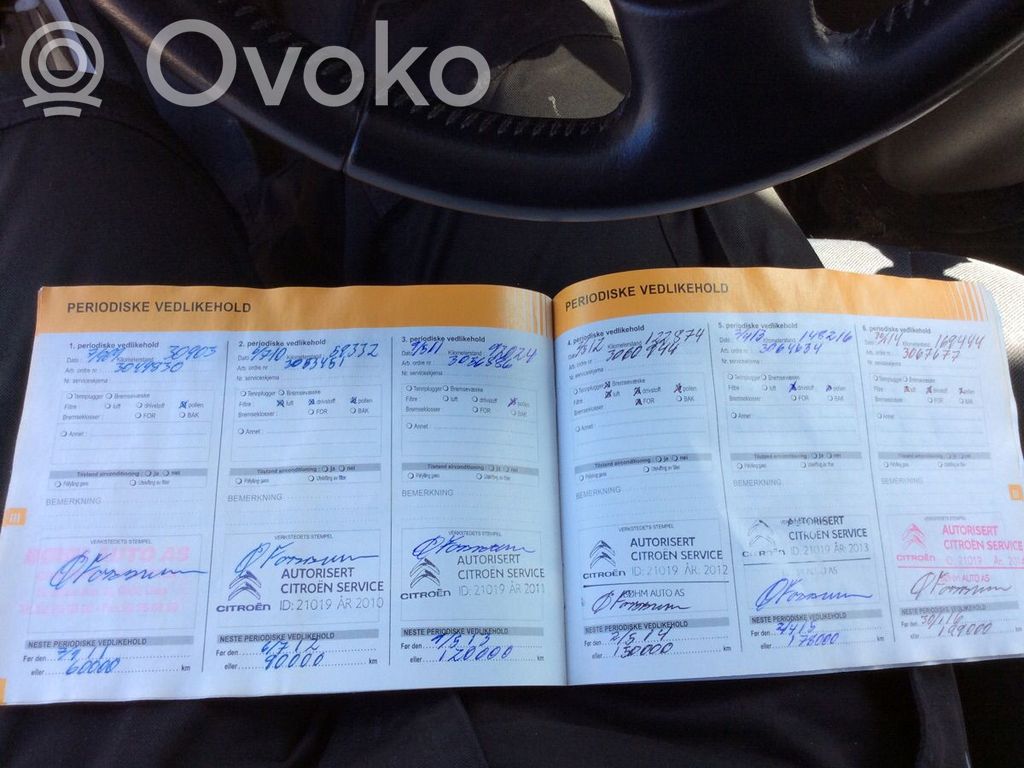 Ovoko
PERIODISKE VEDLIKEHOLD
1. periodiske vedlikehold
Dato: Kilometerstand 30903
Arb. ordre nr 3049930
Nr. serviceskjema
Tennplugger Bremsevæske
Filtre: luft drivstoff pollen
Bremseklosser: FOR BAK
Annet:
Tilstand airconditioning: Ja nei
Påfylling gass Utskifting av filter
BEMERKNING
VERKSTEDETS STEMPEL
AUTO AS
NESTE PERIODISKE VEDLIKEHOLD
Før den
eller 60000 km
2. periodiske vedlikehold
Dato: Kilometerstand 59332
Arb. ordre nr
Nr. serviceskjema
Tennplugger Bremsevæske
Filtre: luft drivstoff pollen
Bremseklosser: FOR BAK
Annet:
Tilstand airconditioning: Ja nei
Påfylling gass Utskifting av filter
BEMERKNING
VERKSTEDETS STEMPEL
AUTORISERT
CITROËN SERVICE
CITROËN ID: 21019 ÅR 2010
NESTE PERIODISKE VEDLIKEHOLD
Før den 6/7 12
eller 90000 km
3. periodiske vedlikehold
Dato: Kilometerstand
Arb. ordre nr 3056556
Nr. serviceskjema
Tennplugger Bremsevæske
Filtre: luft drivstoff pollen
Bremseklosser: FOR BAK
Annet:
Tilstand airconditioning: Ja nei
Påfylling gass Utskifting av filter
BEMERKNING
VERKSTEDETS STEMPEL
AUTORISERT
CITROËN SERVICE
CITROËN ID: 21019 ÅR 2011
NESTE PERIODISKE VEDLIKEHOLD
Før den
eller 120000 km
PERIODISKE VEDLIKEHOLD
4. periodiske vedlikehold
Dato: Kilometerstand 122874
Arb. ordre nr 3060944
Nr. serviceskjema
Tennplugger Bremsevæske
Filtre: luft drivstoff pollen
Bremseklosser: FOR BAK
Annet:
Tilstand airconditioning: Ja nei
Påfylling gass Utskifting av filter
BEMERKNING
VERKSTEDETS STEMPEL
AUTORISERT
CITROËN SERVICE
CITROËN ID: 21019 ÅR: 2012
BØHM AUTO AS
NESTE PERIODISKE VEDLIKEHOLD
Før den 2/5 14
eller 150000 km
5. periodiske vedlikehold
Dato: Kilometerstand 148216
Arb. ordre nr 3064634
Nr. serviceskjema
Tennplugger Bremsevæske
Filtre: luft drivstoff pollen
Bremseklosser: FOR BAK
Annet:
Tilstand airconditioning: Ja nei
Påfylling gass Utskifting av filter
BEMERKNING
VERKSTEDETS STEMPEL
AUTORISERT
CITROËN SERVICE
CITROËN ID: 21019 ÅR: 2013
AUTO AS
NESTE PERIODISKE VEDLIKEHOLD
Før den 2/4 15
eller km
6. periodiske vedlikehold
Dato: Kilometerstand 169444
Arb. ordre nr 3067677
Nr. serviceskjema
Tennplugger Bremsevæske
Filtre: luft drivstoff pollen
Bremseklosser: FOR BAK
Annet:
Tilstand airconditioning: Ja nei
Påfylling gass Utskifting av filter
BEMERKNING
VERKSTEDETS STEMPEL
AUTORISERT
CITROËN SERVICE
CITROËN ID: 21019
BØHM AUTO AS
NESTE PERIODISKE VEDLIKEHOLD
Før den
eller 199000 km
III